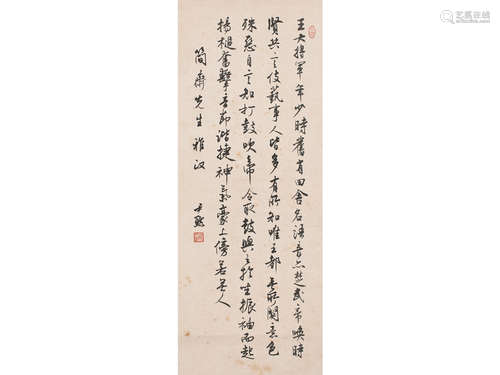 王大將軍年少時舊有田舍名語音亦楚武帝喚時
賢共言伎藝事人皆多有所知唯王都无所關意色
殊惡自言知打鼓吹帝令取鼓與之於坐振袖而起
揚槌奮擊音節諧捷神氣豪上傍若无人
簡齋先生雅
尹默